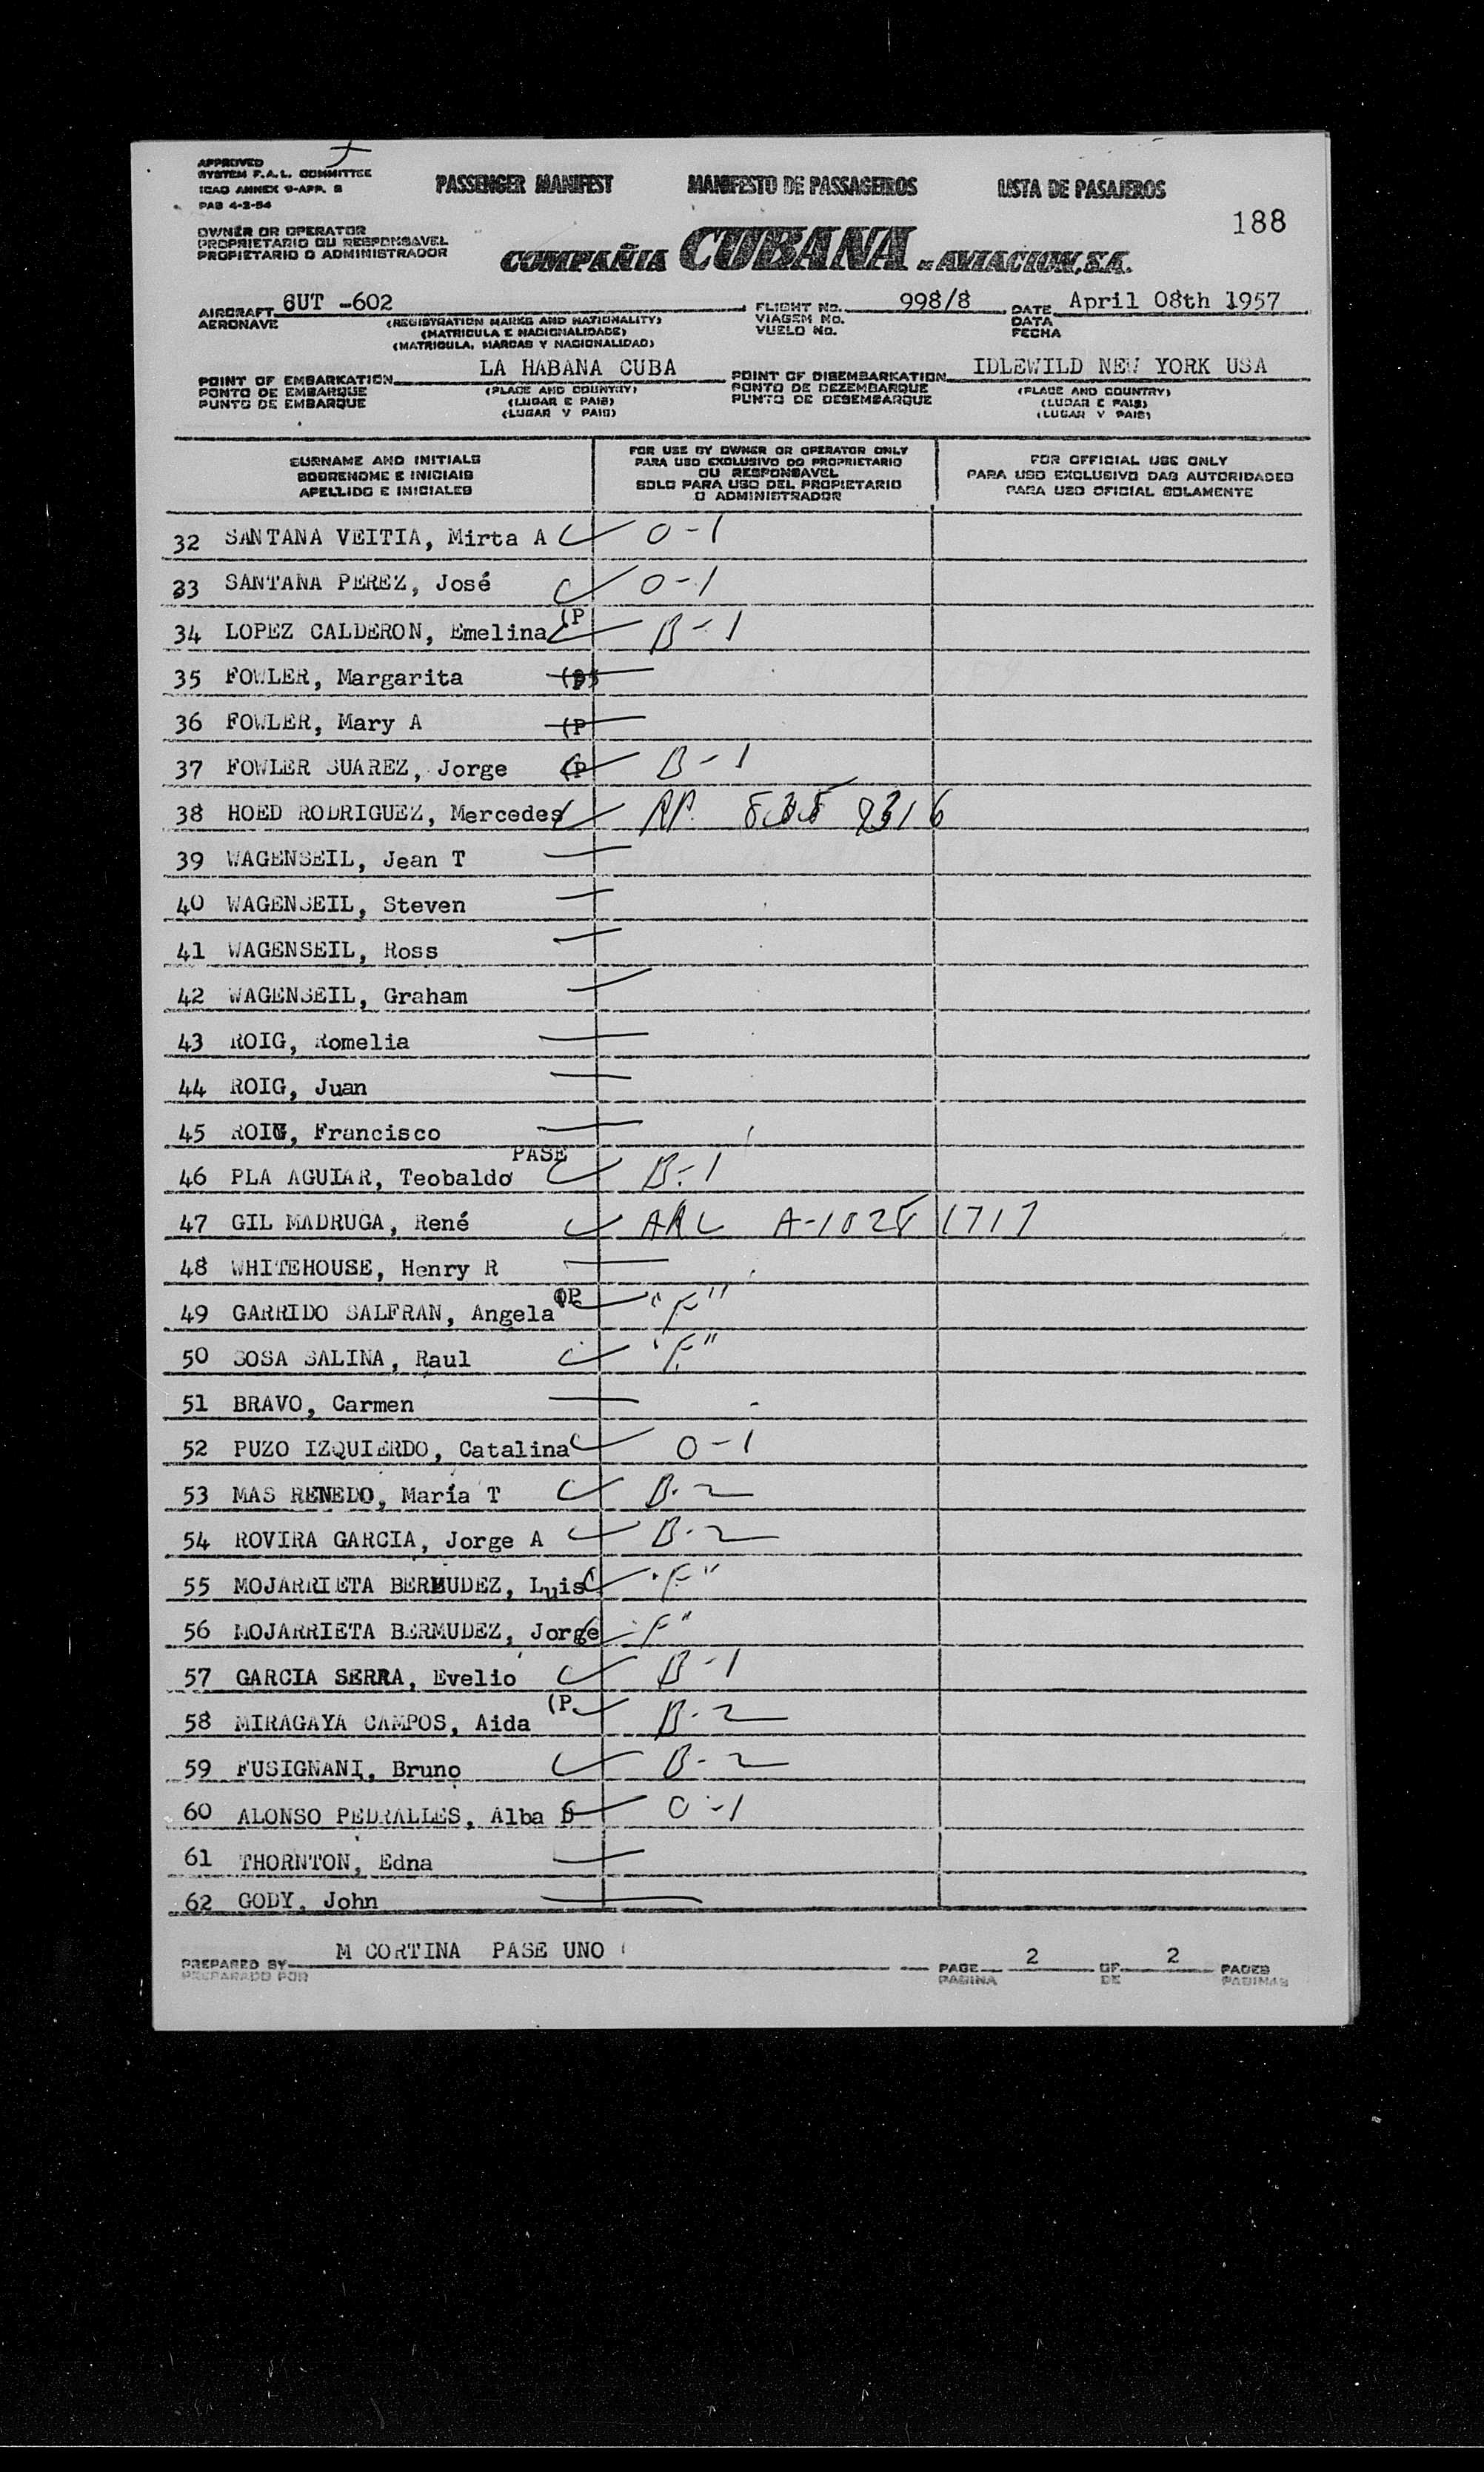 APPROVED
SYSTEM F.A.L. COMMITTEE
ICAO ANNEX 9-APP. 8
PAB 4-2-54
PASSENGER MANIFEST MANIFESTO DE PASSAGEIROS LISTA DE PASAJEROS
188
OWNER OR OPERATOR
PROPRIETARIO OU RESPONSAVEL
PROPIETARIO O ADMINISTRADOR
COMPAÑIA CUBANA DE AVIACION, S.A.
AIRCRAFT CUT -602 FLIGHT No. 998/8 DATE April 08th 1957
AERONAVE (REGISTRATION MARKS AND NATIONALITY) VIAGEM No. DATA
(MATRICULA E NACIONALIDADE) VUELO No. FECHA
(MATRICULA, MARCAS Y NACIONALIDAD)
POINT OF EMBARKATION LA HABANA CUBA POINT OF DISEMBARKATION IDLEWILD NEW YORK USA
PONTO DE EMBARQUE (PLACE AND COUNTRY) PONTO DE DEZEMBARQUE (PLACE AND COUNTRY)
PUNTO DE EMBARQUE (LUGAR E PAIS) PUNTO DE DESEMBARQUE (LUGAR E PAIS)
(LUGAR Y PAIS) (LUGAR Y PAIS)
SURNAME AND INITIALS
SOBRENOME E INICIAIS
APELLIDO E INICIALES
FOR USE BY OWNER OR OPERATOR ONLY
PARA USO EXCLUSIVO DO PROPRIETARIO
OU RESPONSAVEL
SOLO PARA USO DEL PROPIETARIO
O ADMINISTRADOR
FOR OFFICIAL USE ONLY
PARA USO EXCLUSIVO DAS AUTORIDADES
PARA USO OFICIAL SOLAMENTE
32 SANTANA VEITIA, Mirta A O-1
33 SANTANA PEREZ, José O-1
34 LOPEZ CALDERON, Emelina (P B-1
35 FOWLER, Margarita (P)
36 FOWLER, Mary A (P
37 FOWLER SUAREZ, Jorge (P B-1
38 HOED RODRIGUEZ, Mercedes
39 WAGENSEIL, Jean T
40 WAGENSEIL, Steven
41 WAGENSEIL, Ross
42 WAGENSEIL, Graham
43 ROIG, Romelia
44 ROIG, Juan
45 ROIG, Francisco
46 PLA AGUIAR, Teobaldo PASE B-1
47 GIL MADRUGA, René ARC A-1028 1717
48 WHITEHOUSE, Henry R
49 GARRIDO SALFRAN, Angela (P "F"
50 SOSA SALINA, Raul "F"
51 BRAVO, Carmen
52 PUZO IZQUIERDO, Catalina O-1
53 MAS RENEDO, María T B-2
54 ROVIRA GARCIA, Jorge A B-2
55 MOJARRIETA BERMUDEZ, Luis "F"
56 MOJARRIETA BERMUDEZ, Jorge "F"
57 GARCIA SERRA, Evelio B-1
58 MIRAGAYA CAMPOS, Aida (P B-2
59 FUSIGNANI, Bruno B-2
60 ALONSO PEDRALLES, Alba O-1
61 THORNTON, Edna
62 GODY, John
PREPARED BY M CORTINA PASE UNO PAGE 2 OF 2 PAGES
PREPARADO POR PAGINA DE PAGINAS